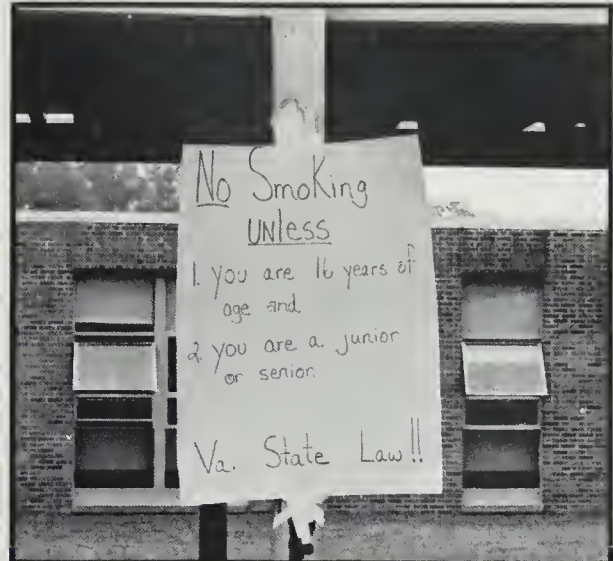 No Smoking
UNless
1. you are 16 years of
age and
2. you are a junior
or senior.
Va. State Law!!